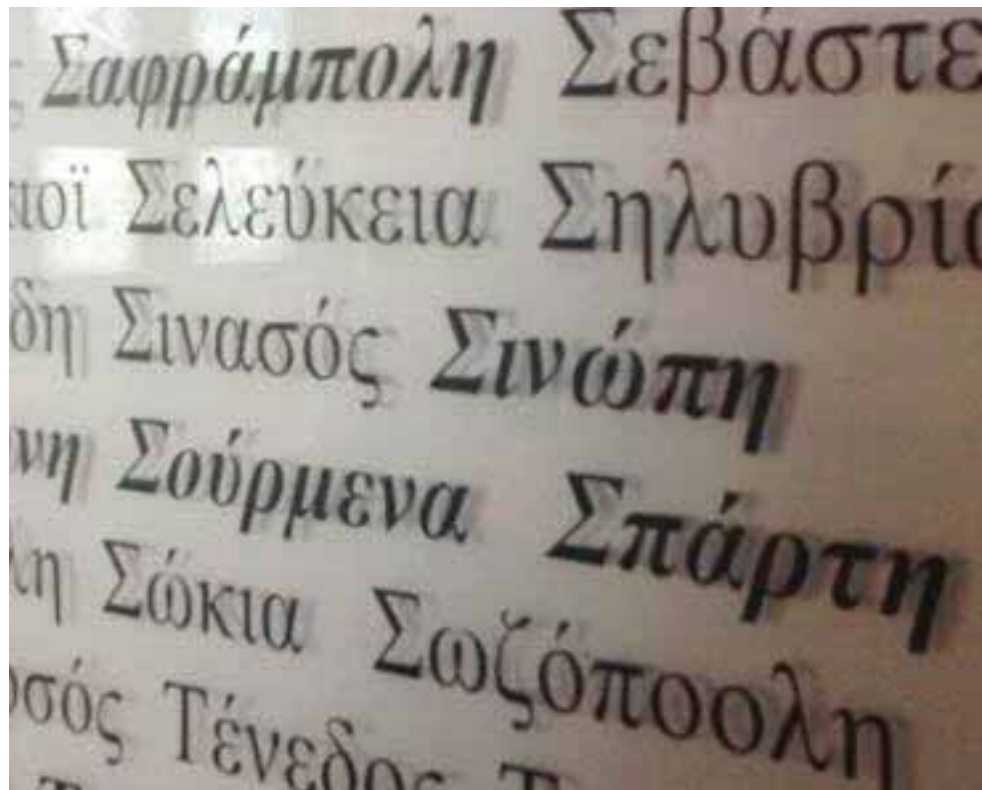 Σαφράμπολη Σεβάστε
ιοϊ Σελεύκεια Σηλυβρία
δη Σινασός Σινώπη
νη Σούρμενα Σπάρτη
λη Σώκια Σωζόποολη
σός Τένεδος